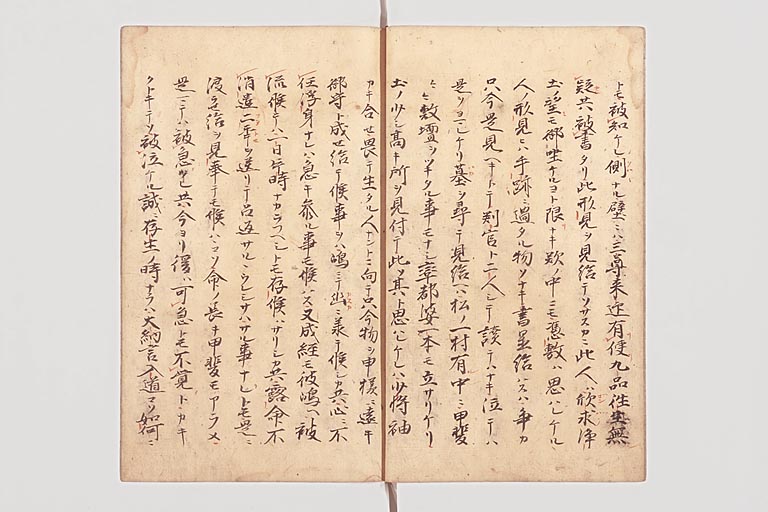 トモ被知ケレ側ナル壁ニハ三尊来迎有便九品往生無
疑共被書タリ此形見ヲ見給テソサスカニ此人ハ欣求浄
土ノ望モ御坐ケルヨト限ナキ歎ノ中ニモ憑敷ハ思ハレケル
人ノ形見ニハ手跡ニ過タル物ソナキ書置給ハスハ争カ
只今是見ヘキトテ判官ト二人シテ読テハナキ泣テハ
是ヲヨミケリ墓ヲ尋テ見給ヘハ松ノ一村有中ニ甲斐
〻〻敷壇ヲツキタル事モナシ卒都婆一本モ立サリケリ
土ノ少シ高キ所ヲ見付テ此ソ其ト思ハレケレハ少将袖
カキ合セ畏テ生タル人ナントニ向テ只今物ヲ申様ニ遠キ
御守ト成セ給テ候事ヲハ嶋ニテ幽ニ承テ候シカ共心ニ不
任浮身ナレハ急キ参ル事モ候ハス又成経モ彼嶋ヘ被
流候テハ一日片時ナカラフヘシトモ存候ハサリシカ共露命不
消二年ヲ送リテ召返サルヽウレシサハサル事ナレトモ是ニ
渡セ給ヲ見奉テモ候ハヽコソ命ノ長キ甲斐モアラメ
是ニテハ被急ツレ共今ヨリ後ハ可急トモ不覚トカキ
クトキテソ被泣ケル誠ニ存生ノ時ナラハ大納言入道コソ如何ニ